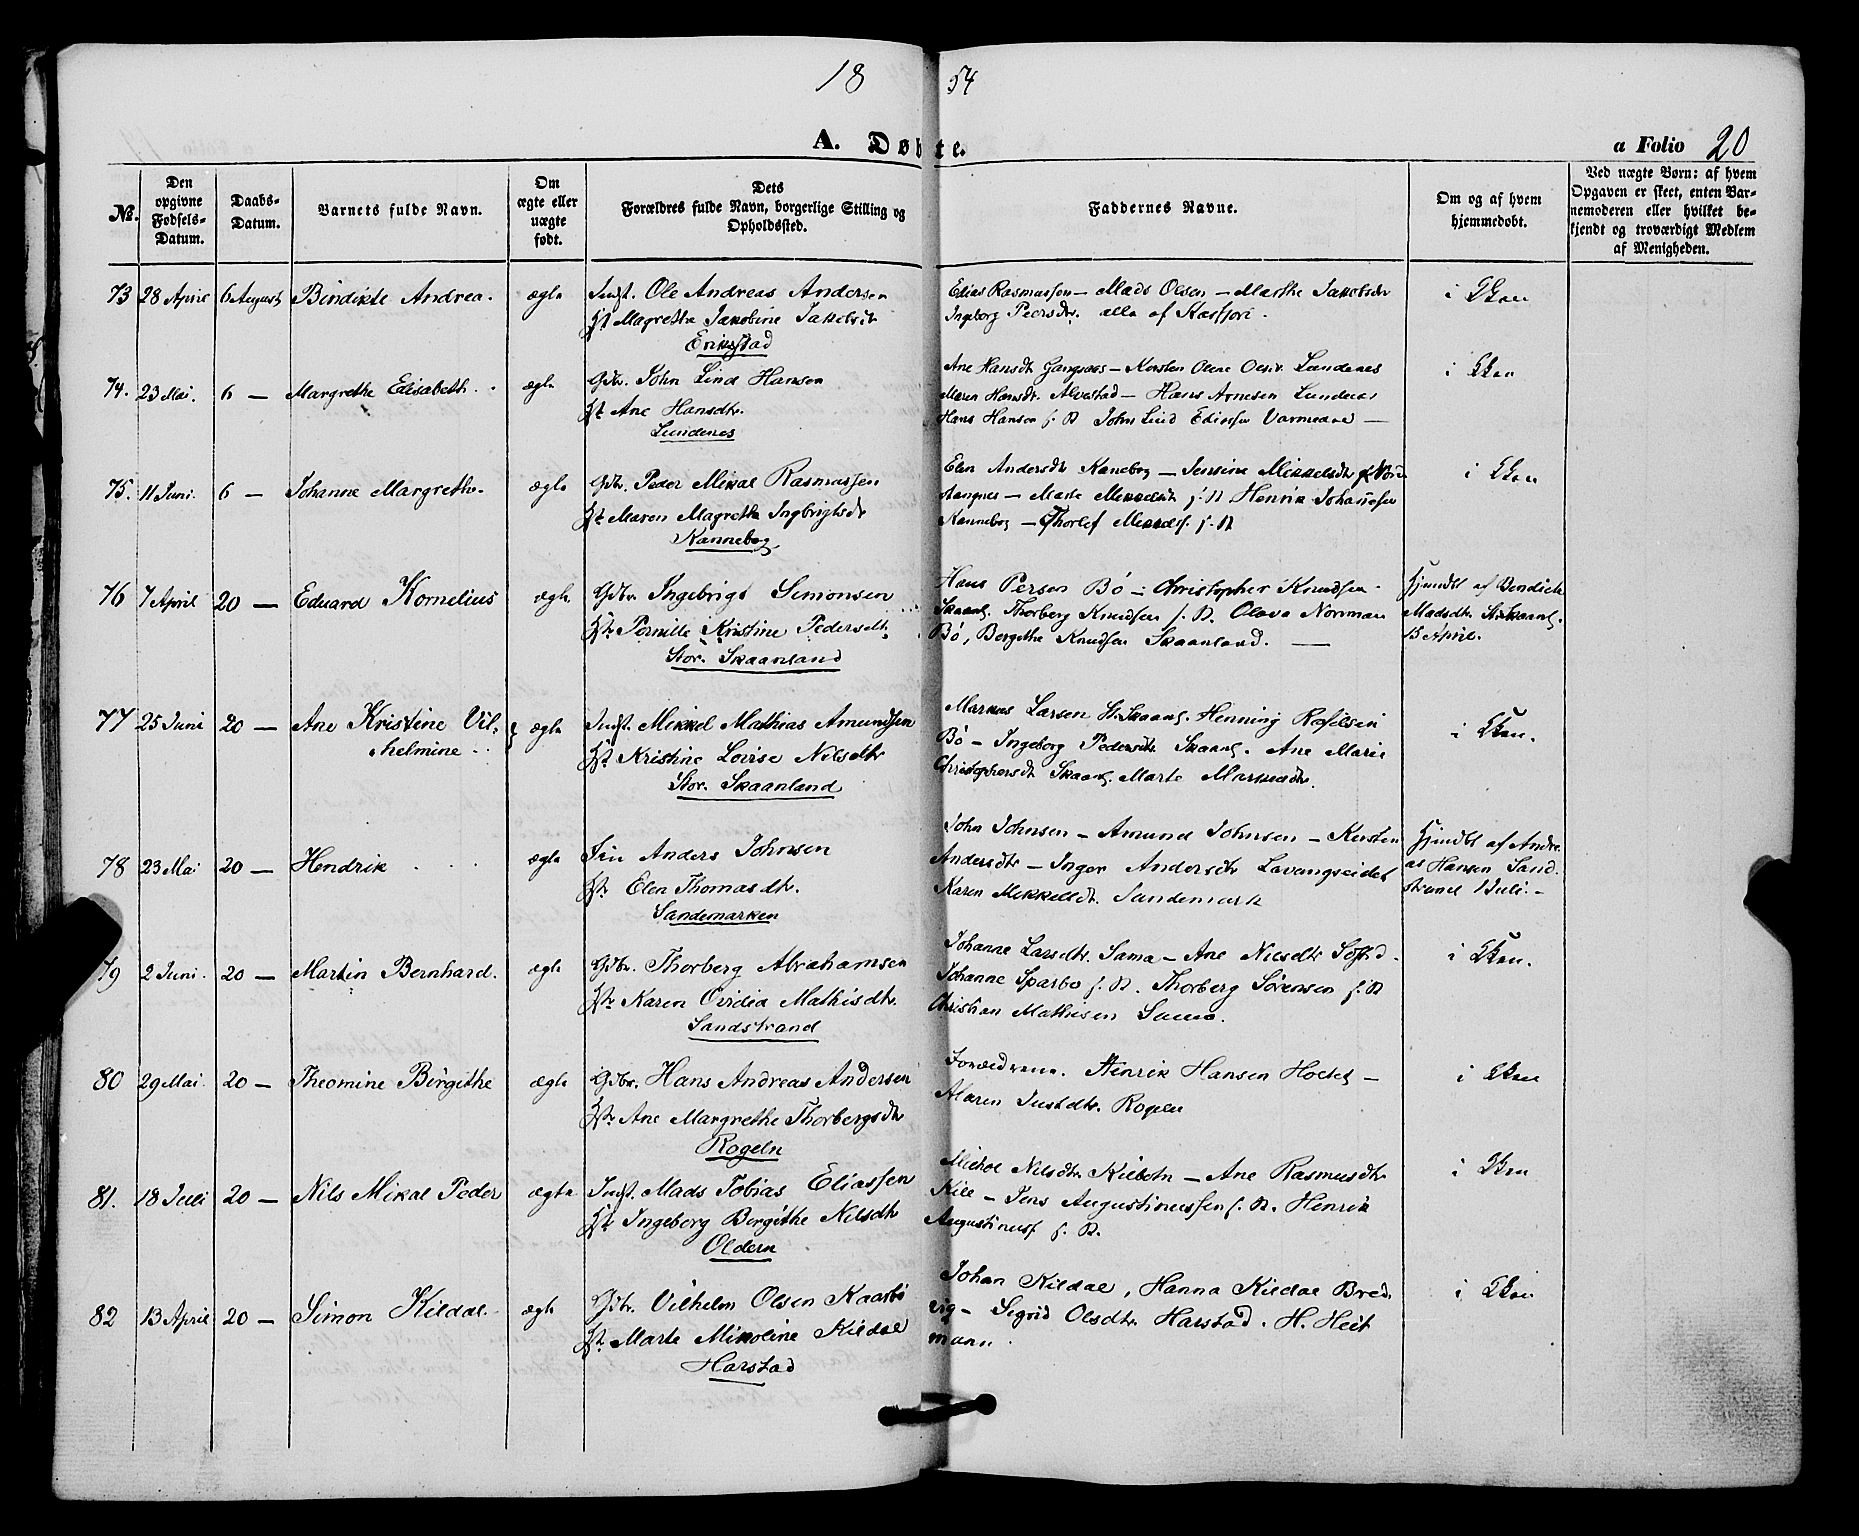 18 54
A. Døbte.
a Folio 20
No.
Den opgivne Fødsels-Datum.
Daabs-Datum.
Barnets fulde Navn.
Om ægte eller uægte født.
Dets Forældres fulde Navn, borgerlige Stilling og Opholdssted.
Faddernes Navne.
Om og af hvem hjemmedøbt.
Ved uægte Børn: af hvem Opgaven er skeet, enten Barnemoderen eller hvilket bekjendt og troværdigt Medlem af Menigheden.
73 28 April 6 August Bindikte Andrea. ægte Indst. Ole Andreas Andersen
Hst. Magrethe Jakobine Jakobsdt
Erikstad
Edias Rasmussen — Mads Olsen — Marthe Jakobsdr
Ingeborg Peersdtr. alle af Kasfjord.
i Kken
74. 23 Mai. 6 — Margrethe Elisabeth. ægte Gdbr. John Lind Hansen
Hst Ane Hansdtr.
Lundenes
Ane Hansdt Gangsaas — Olsdr. Lundenes
Maren Hansdt. Alvestad — Hans Arnesen Lundenes
Hans Hansen s. St. John Lind
i Kken
75. 11 Juni. 6 — Johanne Margrethe. ægte Gdbr. Peder Mikal Rasmussen
Hst Maren Magrethe Ingbrigtsdt
Kannebog
Elen Andersdt Kanebog — Jensine Mikkelsdt
Aangnes — Marte Mikkelsdt s. St. Henrik Johannesen
Kannebog — Thorlef s. St
i Kken
76 7 April 20 — Eduard Kornelius ægte Gdbr. Ingebrigt Simonsen
Hst. Pernille Kristine Pedersdt.
Stor. Skaanland
Hans Person Bö — Christopher Knudsen
Skaanl. Thorberg Knudsen s. St. Olava Normann
Bö, Bergethe Knudsen Skaanland. —
Hjmdbt af Bendicte
Madsdtr St. Skaanl.
13 April.
77 25 Juni 20 — Ane Kristine Vilhelmine ægte Indst. Mikkel Mathias Amundsen
Hst Kristine Lovise Nilsdtr
Stor. Skaanland
Markus Larsen St. Skaanl. Henning Rafelsen
Bö — Ingeborg Pedersdtr Skaanl. Ane Marie
Christophersdt Skaanl. Marte Markusdtr.
i Kken.
78 23 Mai 20 — Hendrik ægte Fin Anders Johnsen
Hst. Elen Thomasdtr.
Sandemarken
John Johnsen — Amund Johnsen — Kirsten
Andersdtr — Inger Andersdtr Lavangseidet
Karen Mikkelsdt. Sandemark
Hjmdbt af Andreas Hansen Sandstrand 1 Juli. —
79 2 Juni. 20 — Martin Bernhard. ægte Gdbr. Thorberg Abrahamsen
Hst. Karen Ovidia Mathisdtr.
Sandstrand
Johanne Larsdtr. Sama — Ane Nilsdtr
Johanne Sparbo s. St. Thorberg Sørensen s. St
Christian Mathisen Sama.
i Kken.
80 29 Mai. 20 — Theomine Birgithe ægte Gdbr. Hans Andreas Andersen
Hst. Ane Margrethe Thorbergsdtr
Rogeln
Forældrene. Henrik Hansen —
Maren Justdtr. Rogeln
i Kken
81. 18 Juli 20 — Nils Mikal Peder ægte Indst. Mads Tobias Eliassen
Hst. Ingeborg Bergithe Nilsdtr
Oldern
Nilsdtr Kilbotn — Ane Rasmusdtr
Kile — Jens Augustinussen s. St. Henrik
Augustinus s. St.
i Kken
82 13 April 20 — Simon Kildal. ægte Gdbr. Vilhelm Olsen Kaasbö
Hst. Marte Mikoline Kildal
Harstad
Johan Kildal, Hanna Kildal Bredvig — Sigrid Olsdtr Harstad. H. Heitmann.
i Kken